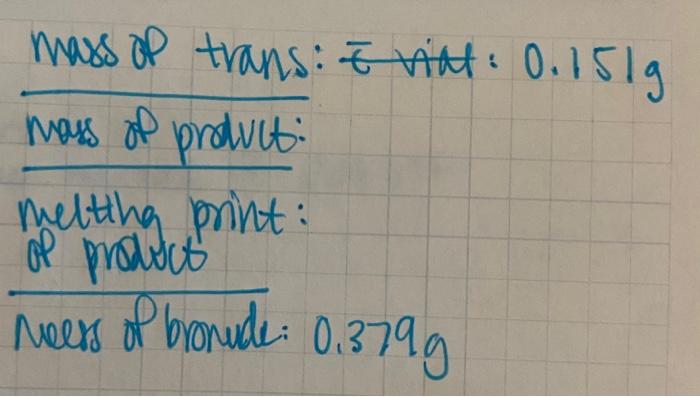 mass of trans: c vial: 0.151g
mass of product:
melting print:
of product
Mass of bromide: 0.379g